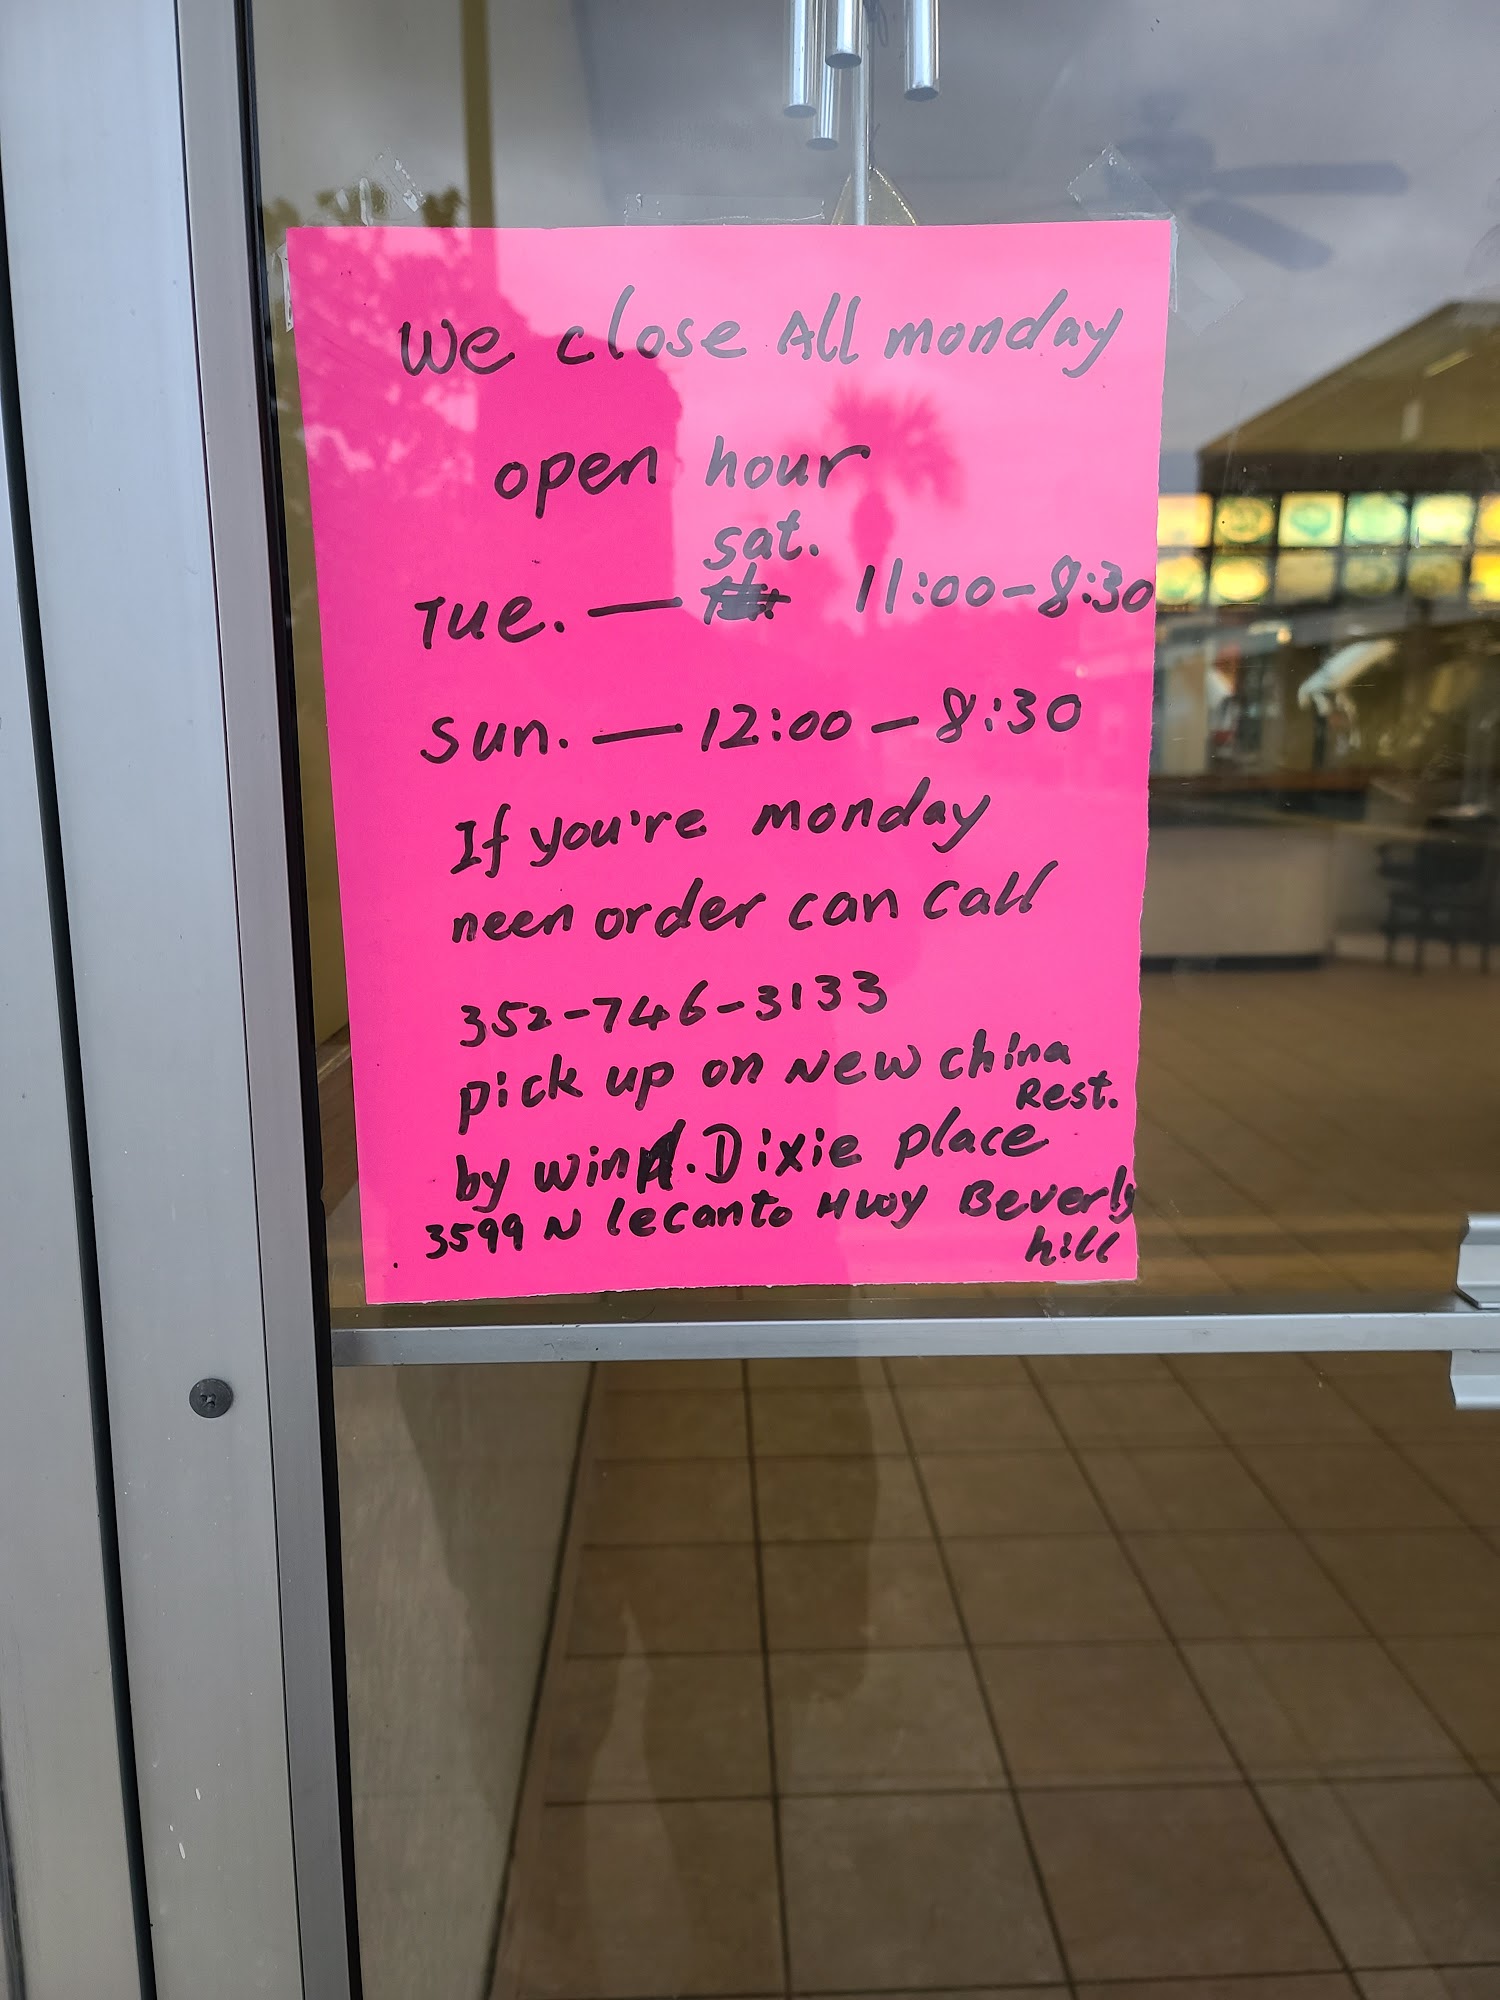 We close All monday
open hour
sat.
Tue. — 11:00-8:30
sun. — 12:00 — 8:30
If you're monday
neen order can call
352-746-3133
pick up on New china
Rest.
by winn. Dixie place
3599 N lecanto Hwy Beverly
hill